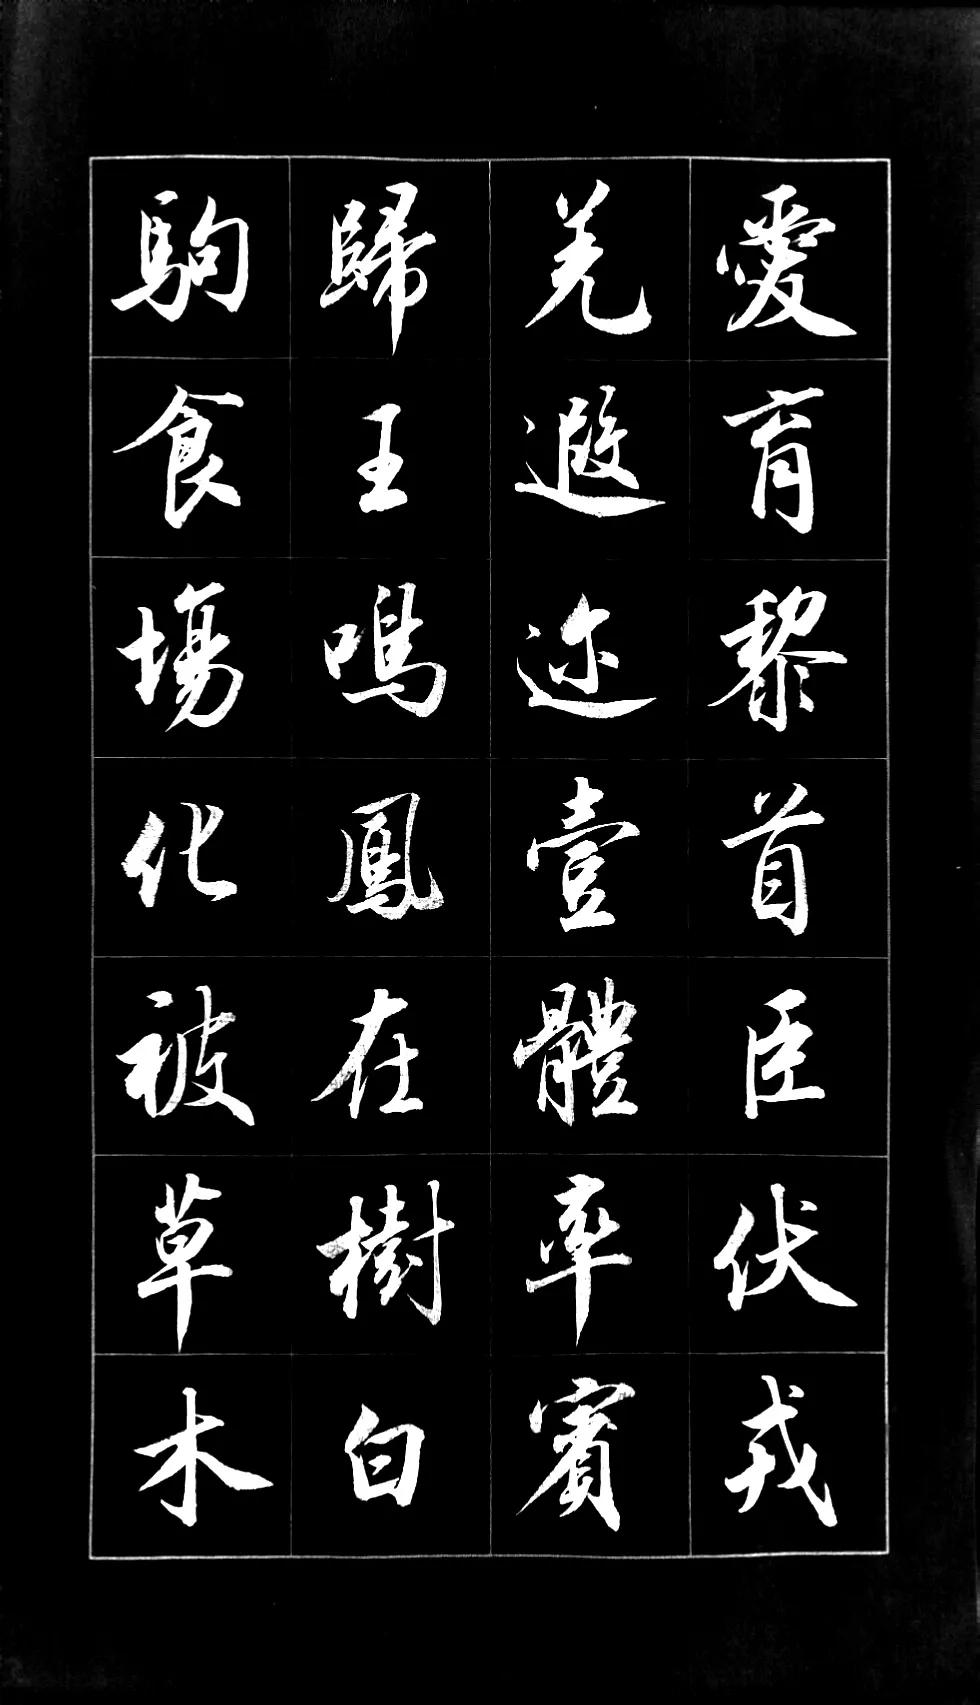 愛育黎首臣伏戎
羌遐迩壹體率賓
歸王鳴鳳在樹白
駒食場化被草木